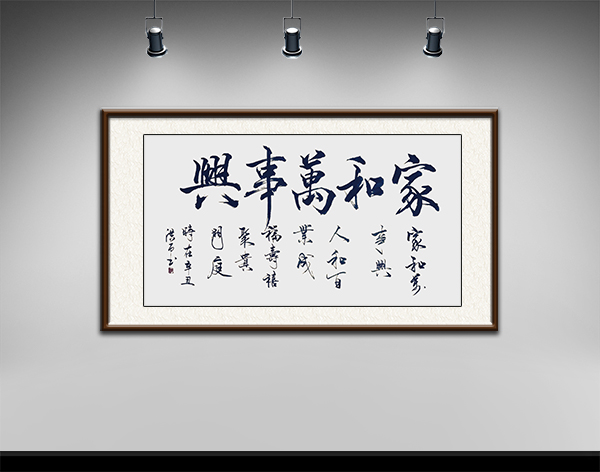 家和萬事興
家和萬
事興
人和百
業成
福壽禧
聚其
門庭
時在辛丑